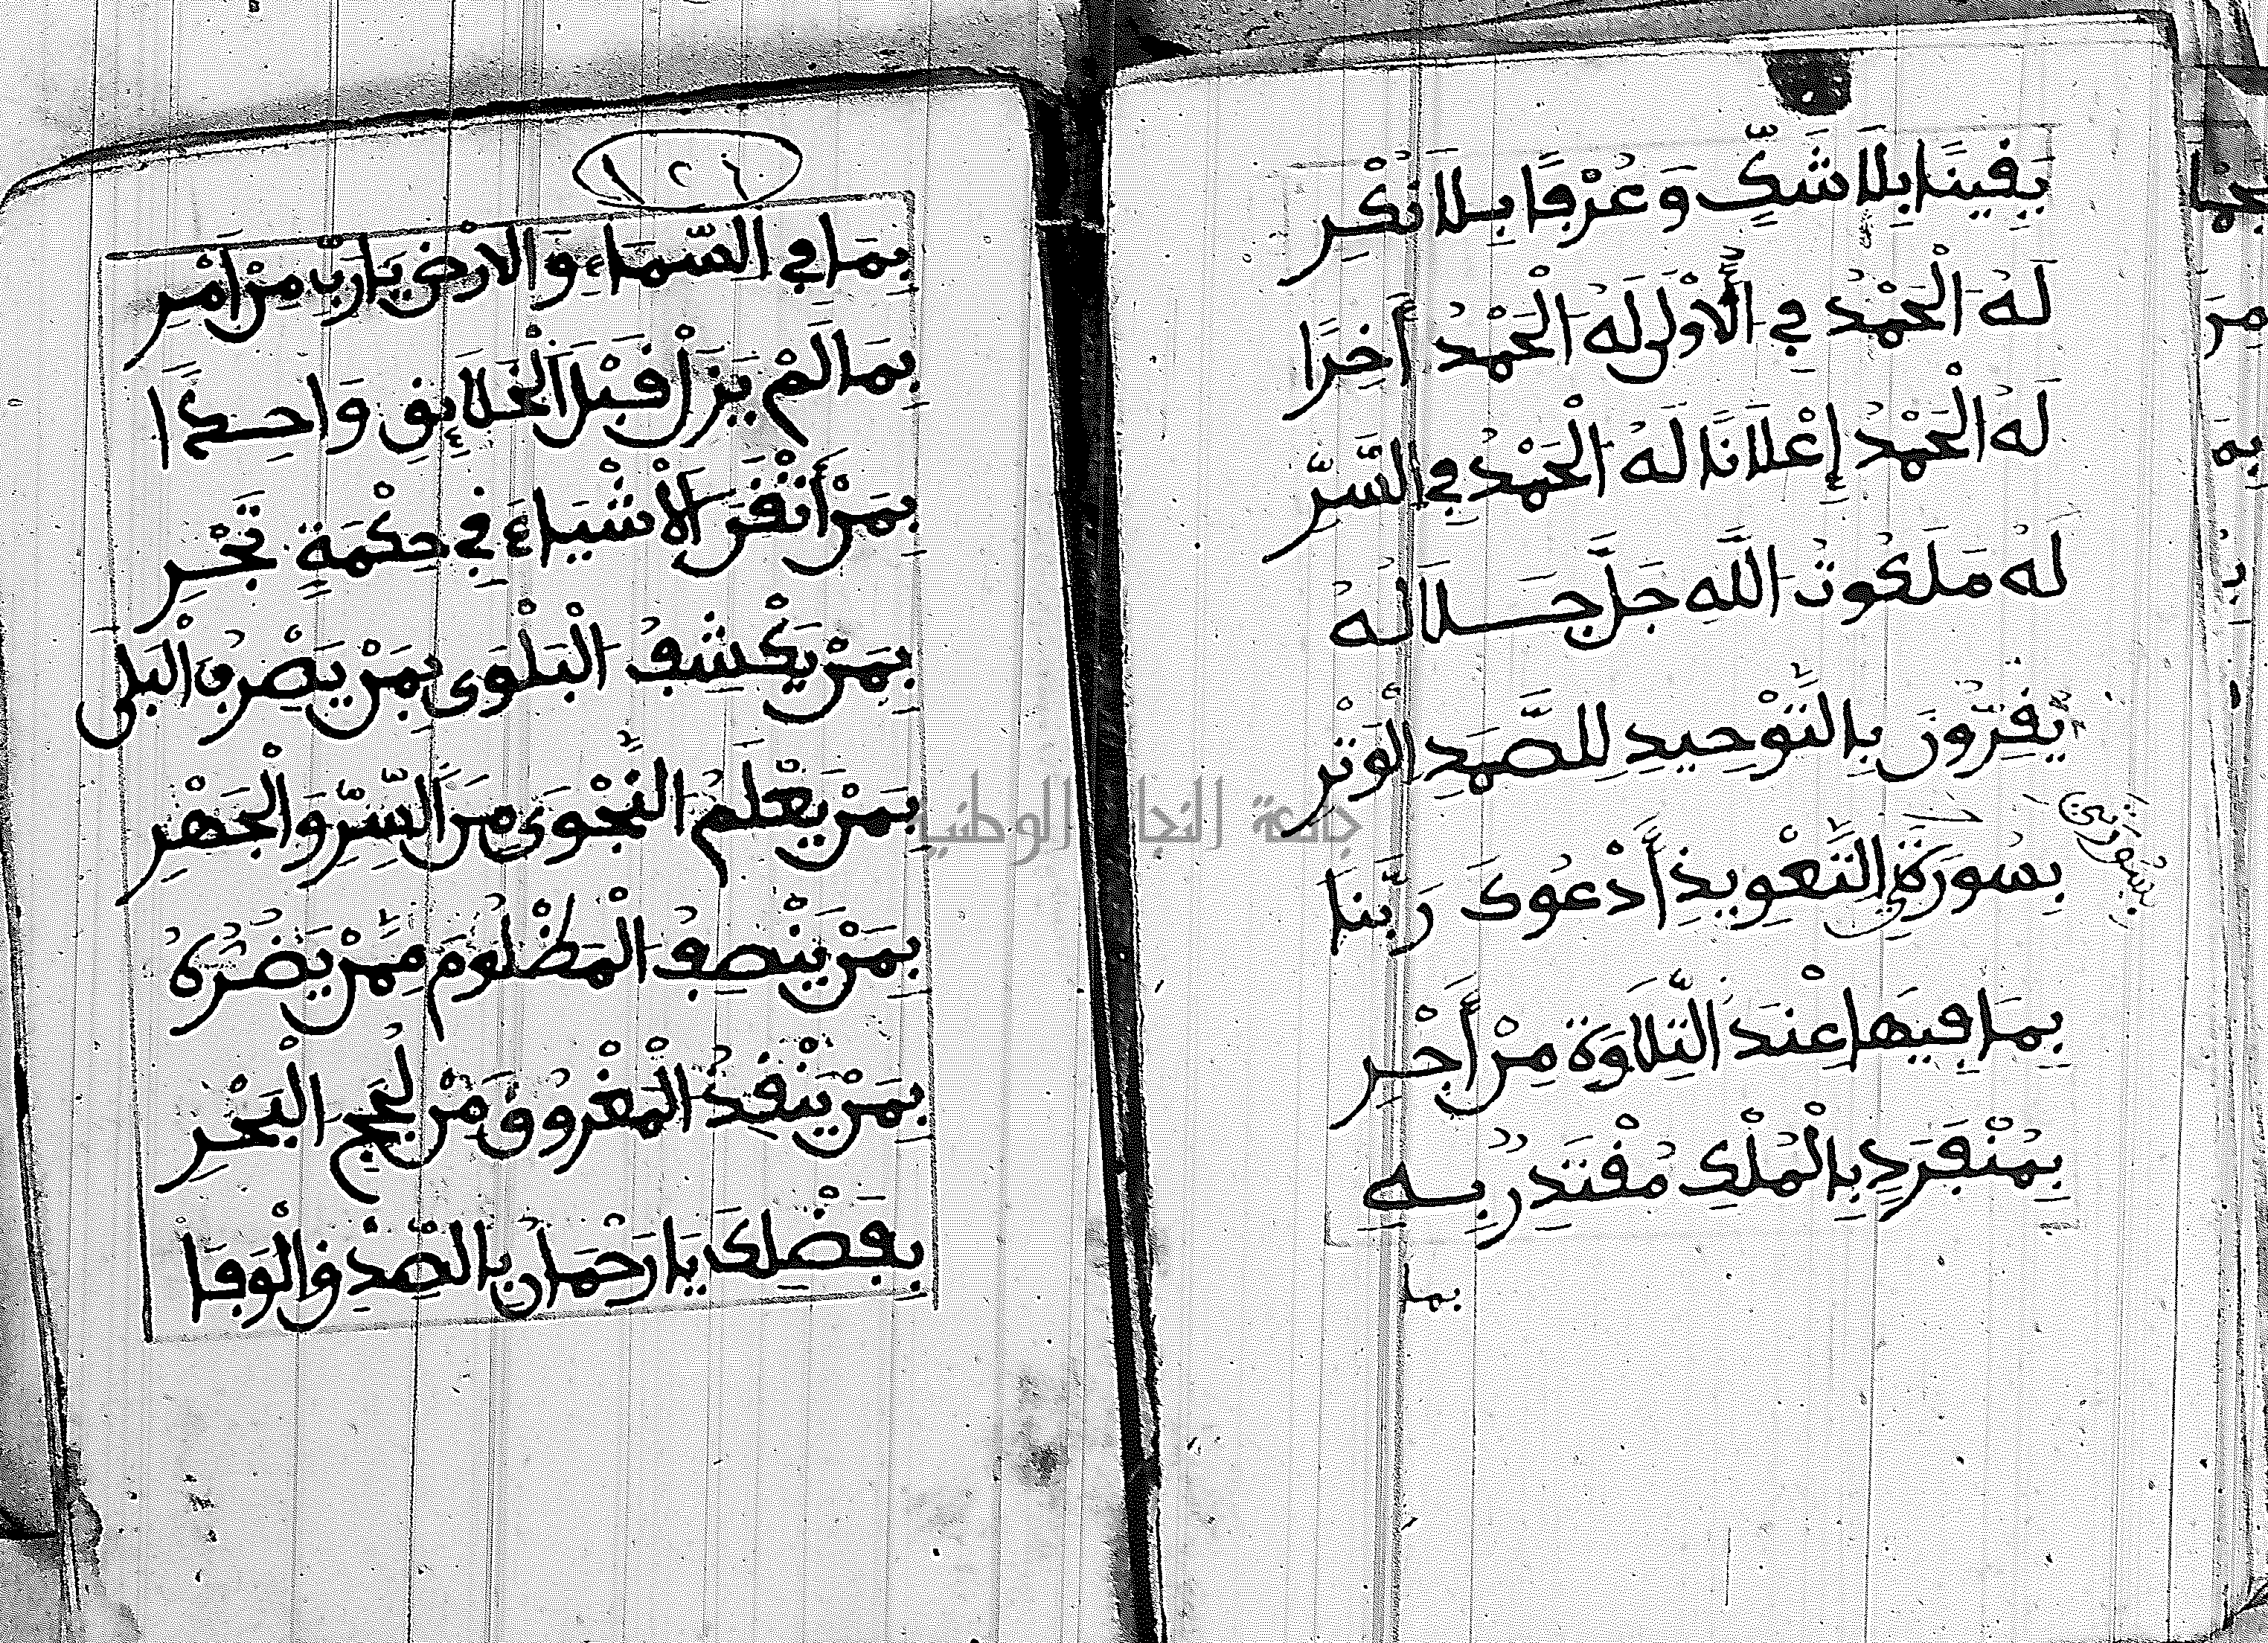 يَقِينًا بِلَا شَكٍّ وَعُرْفًا بِلَا نُكْرِ
لَهُ الْحَمْدُ فِي الْأُولَى لَهُ الْحَمْدُ آخِرًا
لَهُ الْحَمْدُ إِعْلَانًا لَهُ الْحَمْدُ فِي السِّرِّ
لَهُ مَلَكُوتُ اللَّهِ جَلَّ جَلَالُهُ
يُقِرُّونَ بِالتَّوْحِيدِ لِلصَّمَدِ الْوَتْرِ
بِسُورَةِ التَّعْوِيذِ أَدْعُوكَ رَبَّنَا
بسورتي
بِمَا فِيهَا عِنْدَ التِّلَاوَةِ مِنْ أَجْرِ
بِمُنْفَرِدٍ بِالْمُلْكِ مُقْتَدِرٍ بِهِ
بما
١٢٦
بِمَا فِي السَّمَاءِ وَالْأَرْضِ يَا رَبِّ مِنْ أَمْرِ
بِمَا لَمْ يَزَلْ قَبْلَ الْخَلَائِقِ وَاحِدًا
بِمَنْ أَتْقَنَ الْأَشْيَاءَ فِي حِكْمَةٍ تَجْرِ
بِمَنْ يَكْشِفُ الْبَلْوَى بِمَنْ يَصْرِفُ الْبَلَى
بِمَنْ يَعْلَمُ النَّجْوَى مِنَ السِّرِّ وَالْجَهْرِ
بِمَنْ يُنْصِفُ الْمَظْلُومَ مِمَّنْ يَضُرُّهُ
بِمَنْ يُنْقِذُ الْمَغْرُوقَ مَنْ لُجَجِ الْبَحْرِ
بِفَضْلِكَ يَا رَحْمَانُ بِالصِّدْقِ وَالْوَفَا
جامعة النجاح الوطنية